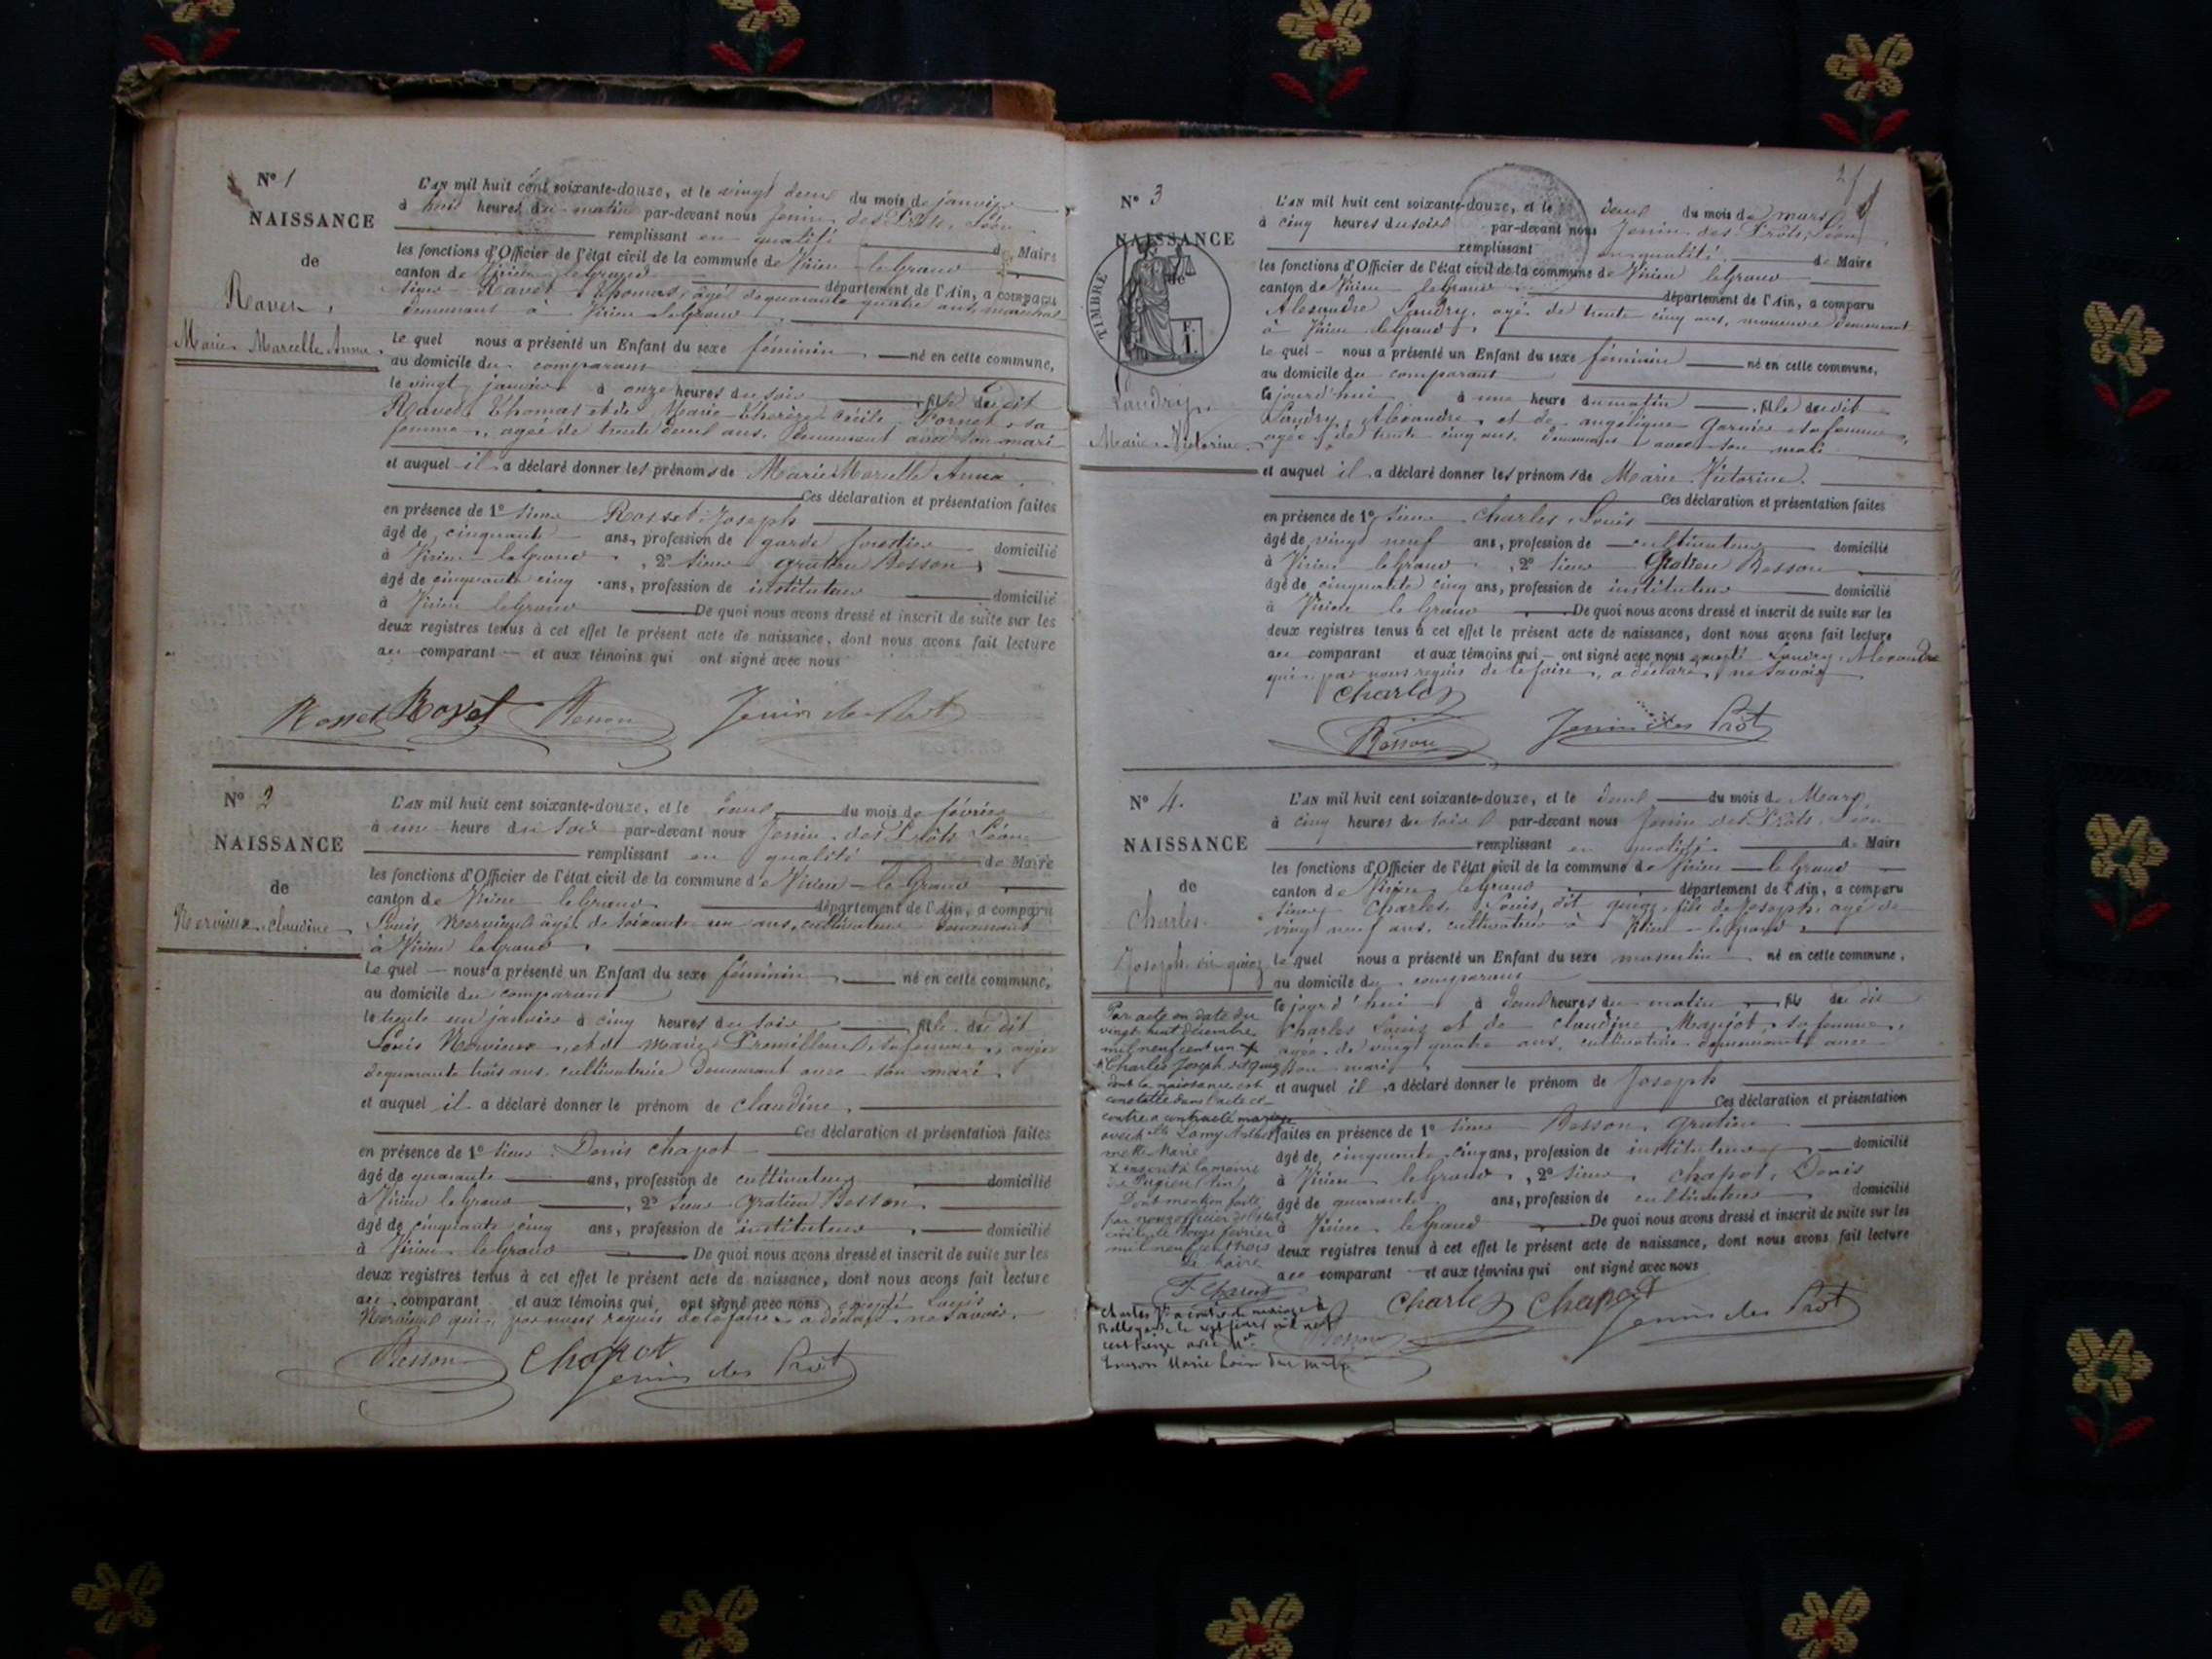 N° 1
NAISSANCE
de
Ravet
Marie Marcelle Anna
L'AN mil huit cent soixante-douze, et le vingt deux du mois de janvier
à huit heures du matin par-devant nous Jenin des Prôts, Léon
remplissant en qualité de Maire
les fonctions d'Officier de l'état civil de la commune de Virieu-le-Grand
canton de Virieu-le-Grand département de l'Ain, a comparu
sieur Ravet Thomas, âgé de quarante quatre ans, maréchal
demeurant à Virieu le Grand
Le quel nous a présenté un Enfant du sexe féminin né en cette commune,
au domicile du comparant
le vingt janvier à onze heures du soir fille du dit
Ravet Thomas et de Marie Thérèze Cécile sa
femme, agée de trente deux ans, demeurant avec son mari
et auquel il a déclaré donner les prénoms de Marie Marcelle Anna
Ces déclaration et présentation faites
en présence de 1° sieur Rosset Joseph
âgé de cinquante ans, profession de garde forestier domicilié
à Virieu le Grand, 2° sieur Gratien Besson,
âgé de cinquante cinq ans, profession de instituteur domicilié
à Virieu le Grand De quoi nous avons dressé et inscrit de suite sur les
deux registres tenus à cet effet le présent acte de naissance, dont nous avons fait lecture
au comparant et aux témoins qui ont signé avec nous
Rosset Ravet Besson Jenin des Prôt
N° 2
NAISSANCE
de
Nervieux Claudine
L'AN mil huit cent soixante-douze, et le deux du mois de février
à une heure du soir par-devant nous Jenin des Prôts Léon
remplissant en qualité de Maire
les fonctions d'Officier de l'état civil de la commune de Virieu-le-Grand
canton de Virieu le Grand département de l'Ain, a comparu
Louis Nervieux âgé de soixante un ans, cultivateur demeurant
à Virieu le Grand
Le quel nous a présenté un Enfant du sexe féminin né en cette commune,
au domicile du comparant
le trente un janvier à cinq heures du soir fille du dit
Louis Nervieux, et de Marie sa femme, agée
de quarante trois ans, cultivatrice demeurant avec son mari
et auquel il a déclaré donner le prénom de Claudine,
Ces déclaration et présentation faites
en présence de 1° sieur Denis Chapot
âgé de quarante ans, profession de cultivateur domicilié
à Virieu le Grand, 2° sieur Gratien Besson
âgé de cinquante cinq ans, profession de instituteur, domicilié
à Virieu le Grand De quoi nous avons dressé et inscrit de suite sur les
deux registres tenus à cet effet le présent acte de naissance, dont nous avons fait lecture
au comparant et aux témoins qui ont signé avec nous excepté Louis
Nervieux qui, par nous requis de le faire a déclaré ne savoir.
Besson Chapot
Jenin des Prôt
2
N° 3
NAISSANCE
de
TIMBRE
F.
1.
Landry
Marie Victorine
L'AN mil huit cent soixante-douze, et le deux du mois de mars
à cinq heures du soir par-devant nous Jenin des Prôts, Léon
remplissant en qualité de Maire
les fonctions d'Officier de l'état civil de la commune de Virieu le Grand
canton de Virieu le Grand département de l'Ain, a comparu
Alexandre Landry, agé de trente cinq ans, manœuvre demeurant
à Virieu le Grand
Le quel nous a présenté un Enfant du sexe féminin né en cette commune,
au domicile du comparant
Ce jourd'hui à une heure du matin fille du dit
Landry, Alexandre et de angélique Garnier sa femme,
agée de trente cinq ans, demeurant avec son mari
et auquel il a déclaré donner les prénoms de Marie Victorine.
Ces déclaration et présentation faites
en présence de 1° sieur Charles Louis
âgé de vingt neuf ans, profession de cultivateur domicilié
à Virieu le Grand, 2° sieur Gratien Besson
âgé de cinquante cinq ans, profession de instituteur domicilié
à Virieu le Grand De quoi nous avons dressé et inscrit de suite sur les
deux registres tenus à cet effet le présent acte de naissance, dont nous avons fait lecture
au comparant et aux témoins qui ont signé avec nous excepté Landry, Alexandre
qui, par nous requis de le faire, a déclaré ne savoir
Charles
Besson Jenin des Prôt
N° 4
NAISSANCE
de
Charles
Joseph dit quinq
L'AN mil huit cent soixante-douze, et le deux du mois de Mars,
à cinq heures du soir par-devant nous Jenin des Prôts, Léon
remplissant en qualité de Maire
les fonctions d'Officier de l'état civil de la commune de Virieu le Grand
canton de Virieu le Grand département de l'Ain, a comparu
sieur Charles Louis, dit fils de Joseph, agé de
vingt neuf ans, cultivateur à Virieu-le-Grand
Le quel nous a présenté un Enfant du sexe masculin né en cette commune,
au domicile du comparant
Ce jourd'hui à deux heures du matin fils du dit
Charles Louis et de Claudine sa femme,
agée de vingt quatre ans, cultivatrice demeurant avec
son mari
et auquel il a déclaré donner le prénom de Joseph
Ces déclaration et présentation
faites en présence de 1° sieur Besson, Gratien
âgé de cinquante cinq ans, profession de instituteur domicilié
à Virieu le Grand, 2° sieur Chapot, Denis
âgé de quarante ans, profession de cultivateur domicilié
à Virieu le Grand De quoi nous avons dressé et inscrit de suite sur les
deux registres tenus à cet effet le présent acte de naissance, dont nous avons fait lecture
au comparant et aux témoins qui ont signé avec nous
Charles Chapot
Besson Jenin des Prôt
Par acte en date du
vingt huit décembre
mil neuf cent un
Charles Joseph
dont la naissance est
constatée dans l'acte ci-
contre a contracté mariage
avec Lamy
Marie
à la mairie
de
Dont mention faite
par nous officier de l'état
civil le février
mil neuf cent trois
Le Maire
Charles a contracté mariage à
Bellegarde le sept mil neuf
cent treize avec
Marie